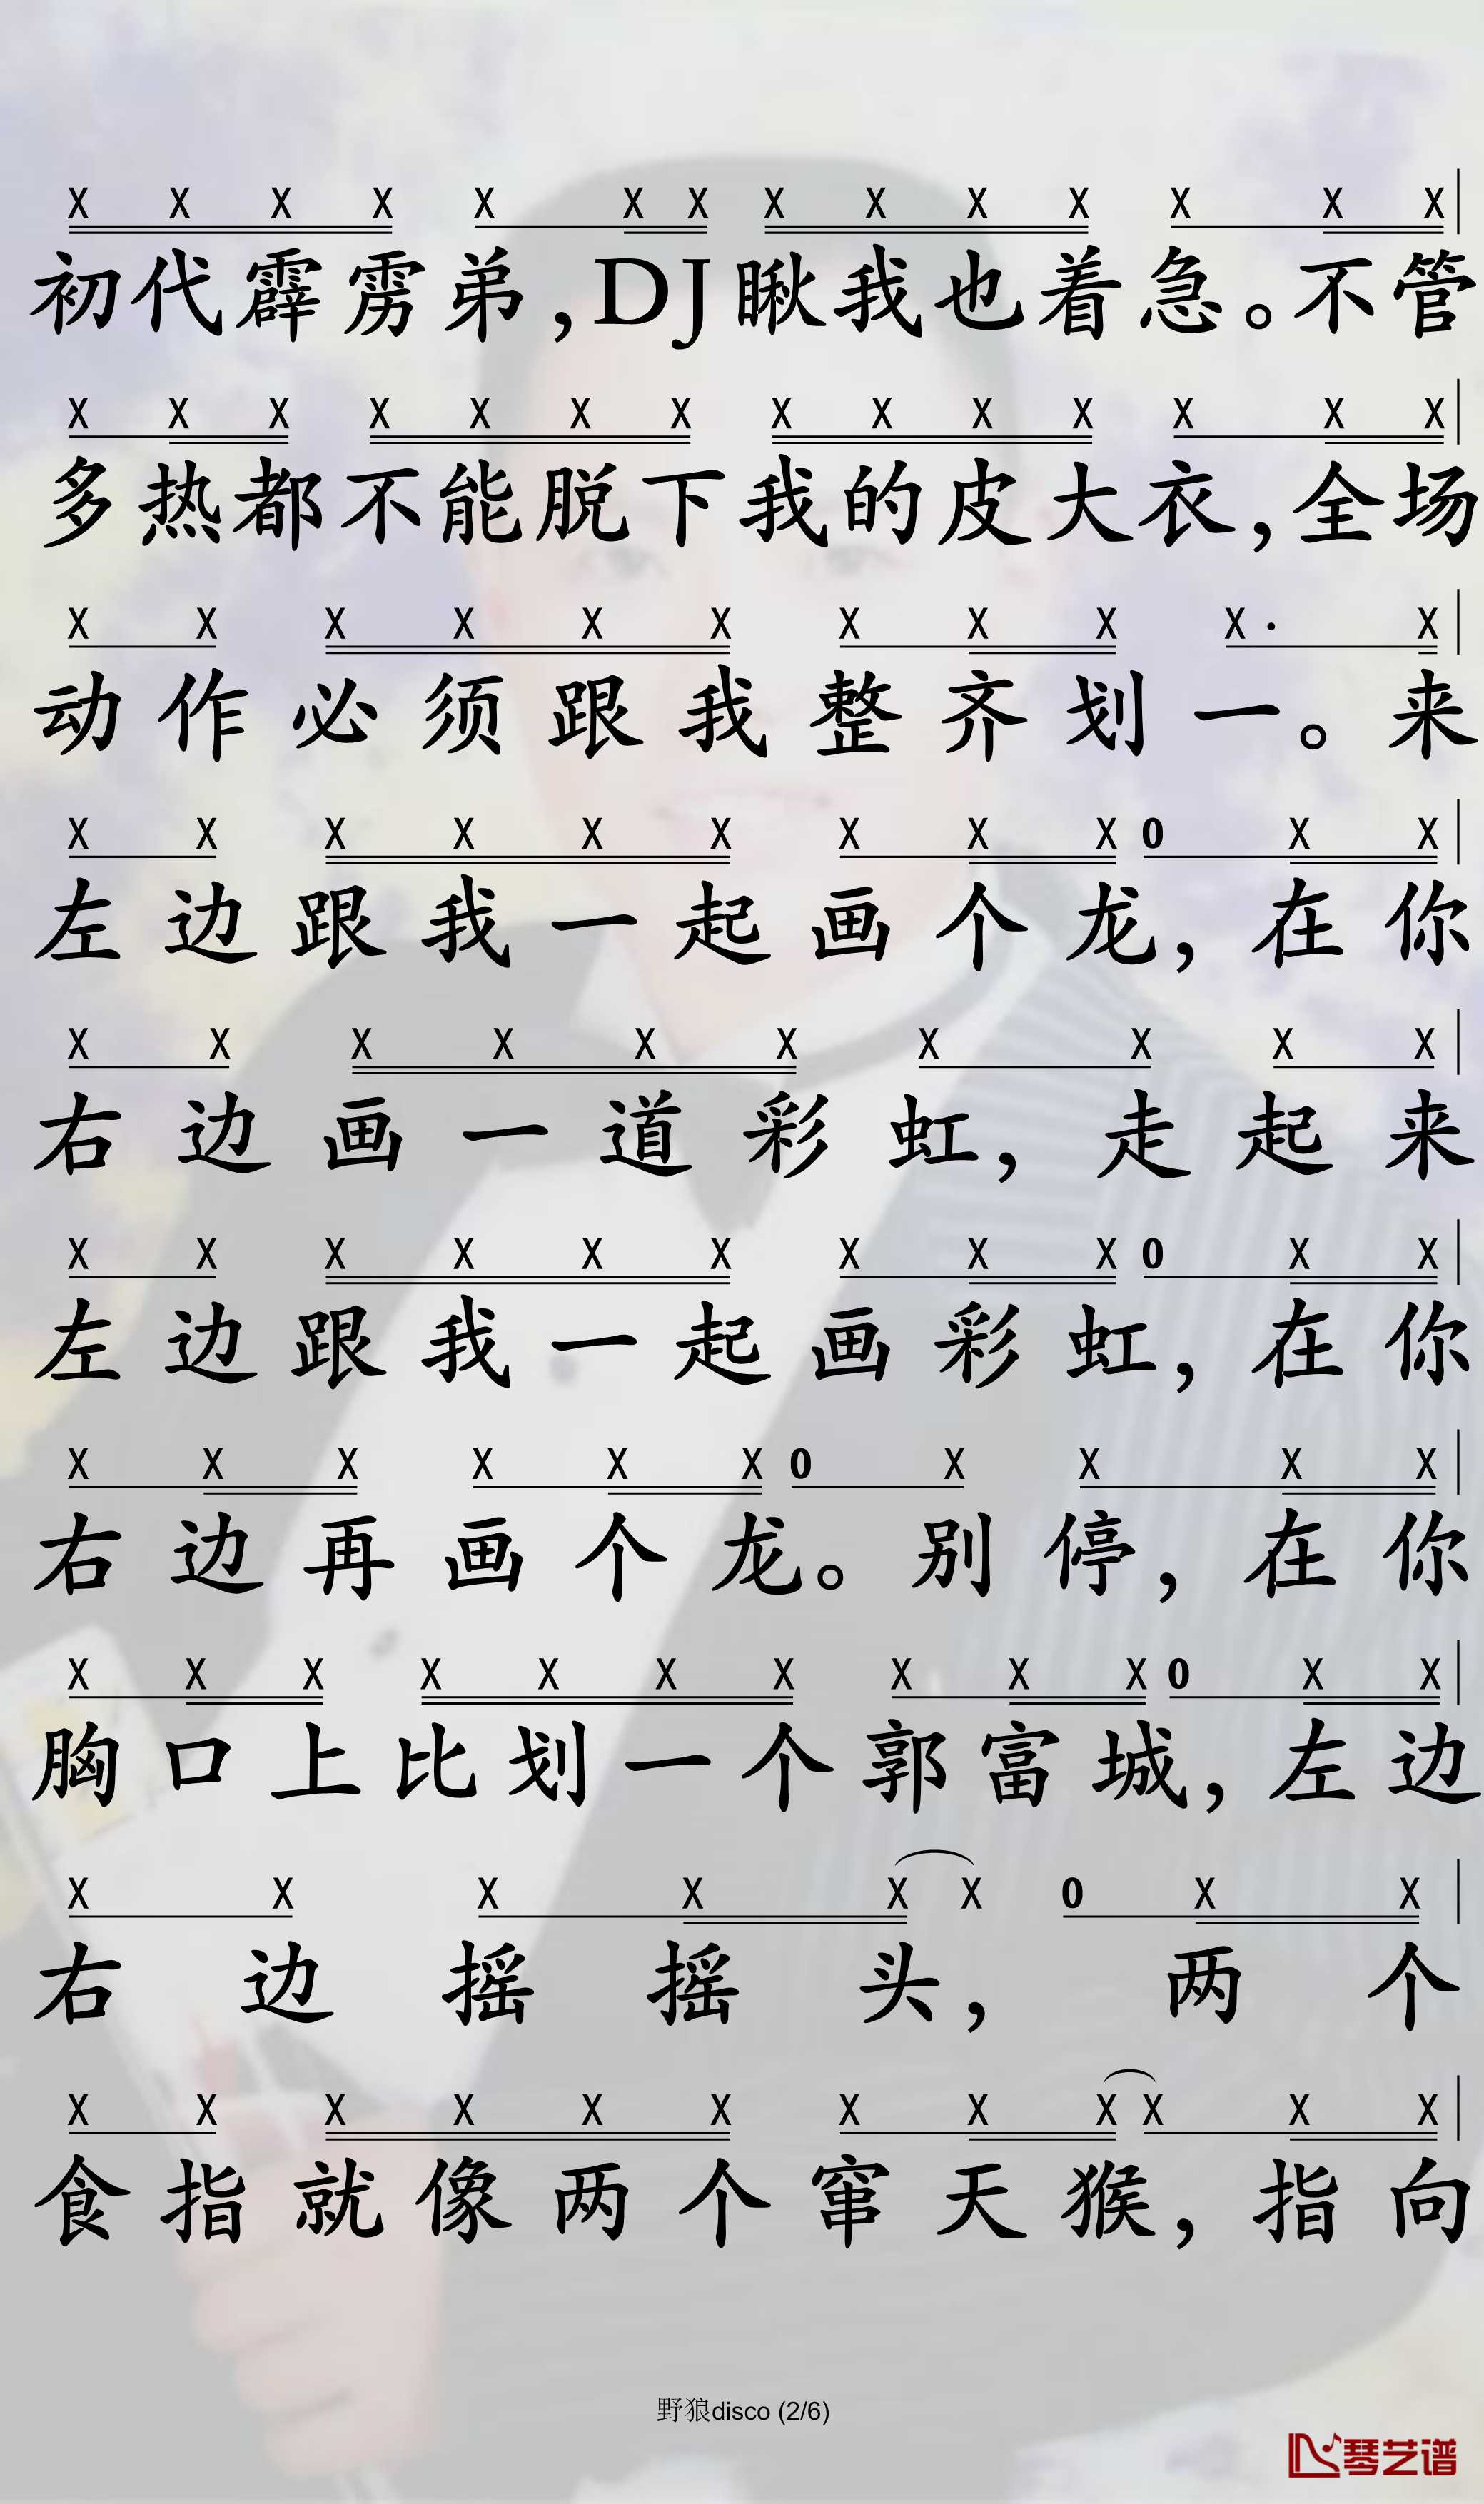 X X X X X X X X X X X X X X
初代霹雳弟,DJ瞅我也着急。不管
X X X X X X X X X X X X X X
多热都不能脱下我的皮大衣,全场
X X X X X X X X X X· X
动作必须跟我整齐划一。来
X X X X X X X X X 0 X X
左边跟我一起画个龙,在你
X X X X X X X X X X
右边画一道彩虹,走起来
X X X X X X X X X 0 X X
左边跟我一起画彩虹,在你
X X X X X X 0 X X X X
右边再画个龙。别停,在你
X X X X X X X X X X 0 X X
胸口上比划一个郭富城,左边
X X X X X X 0 X X
右边摇摇头,两个
X X X X X X X X X X X X
食指就像两个窜天猴,指向
野狼disco (2/6)
琴艺谱